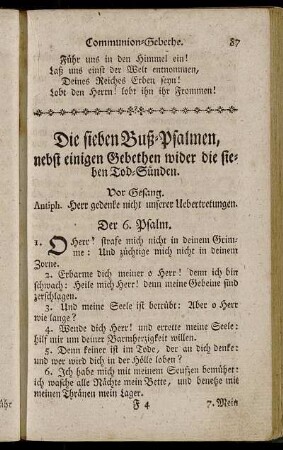 Communion-Gebethe. 87
Führ uns in den Himmel ein!
Laß uns einst der Welt entnommen,
Deines Reiches Erben seyn!
Lobt den Herrn! lobt ihn ihr Frommen!
Die sieben Buß-Psalmen,
nebst einigen Gebethen wider die sie-
ben Tod-Sünden.
Vor Gesang.
Antiph. Herr gedenke nicht unserer Uebertretungen.
Der 6. Psalm.
1. O Herr! strafe mich nicht in deinem Grim-
me: Und züchtige mich nicht in deinem
Zorne.
2. Erbarme dich meiner o Herr! denn ich bin
schwach: Heile mich Herr! denn meine Gebeine sind
zerschlagen.
3. Und meine Seele ist betrübt: Aber o Herr
wie lange?
4. Wende dich Herr! und errette meine Seele:
hilf mir um deiner Barmherzigkeit willen.
5. Denn keiner ist im Tode, der an dich denke:
und wer wird dich in der Hölle loben?
6. Ich habe mich mit meinem Seufzen bemühet:
ich wasche alle Nächte mein Bette, und benetze mit
meinen Thränen mein Lager.
F 4 7. Mein